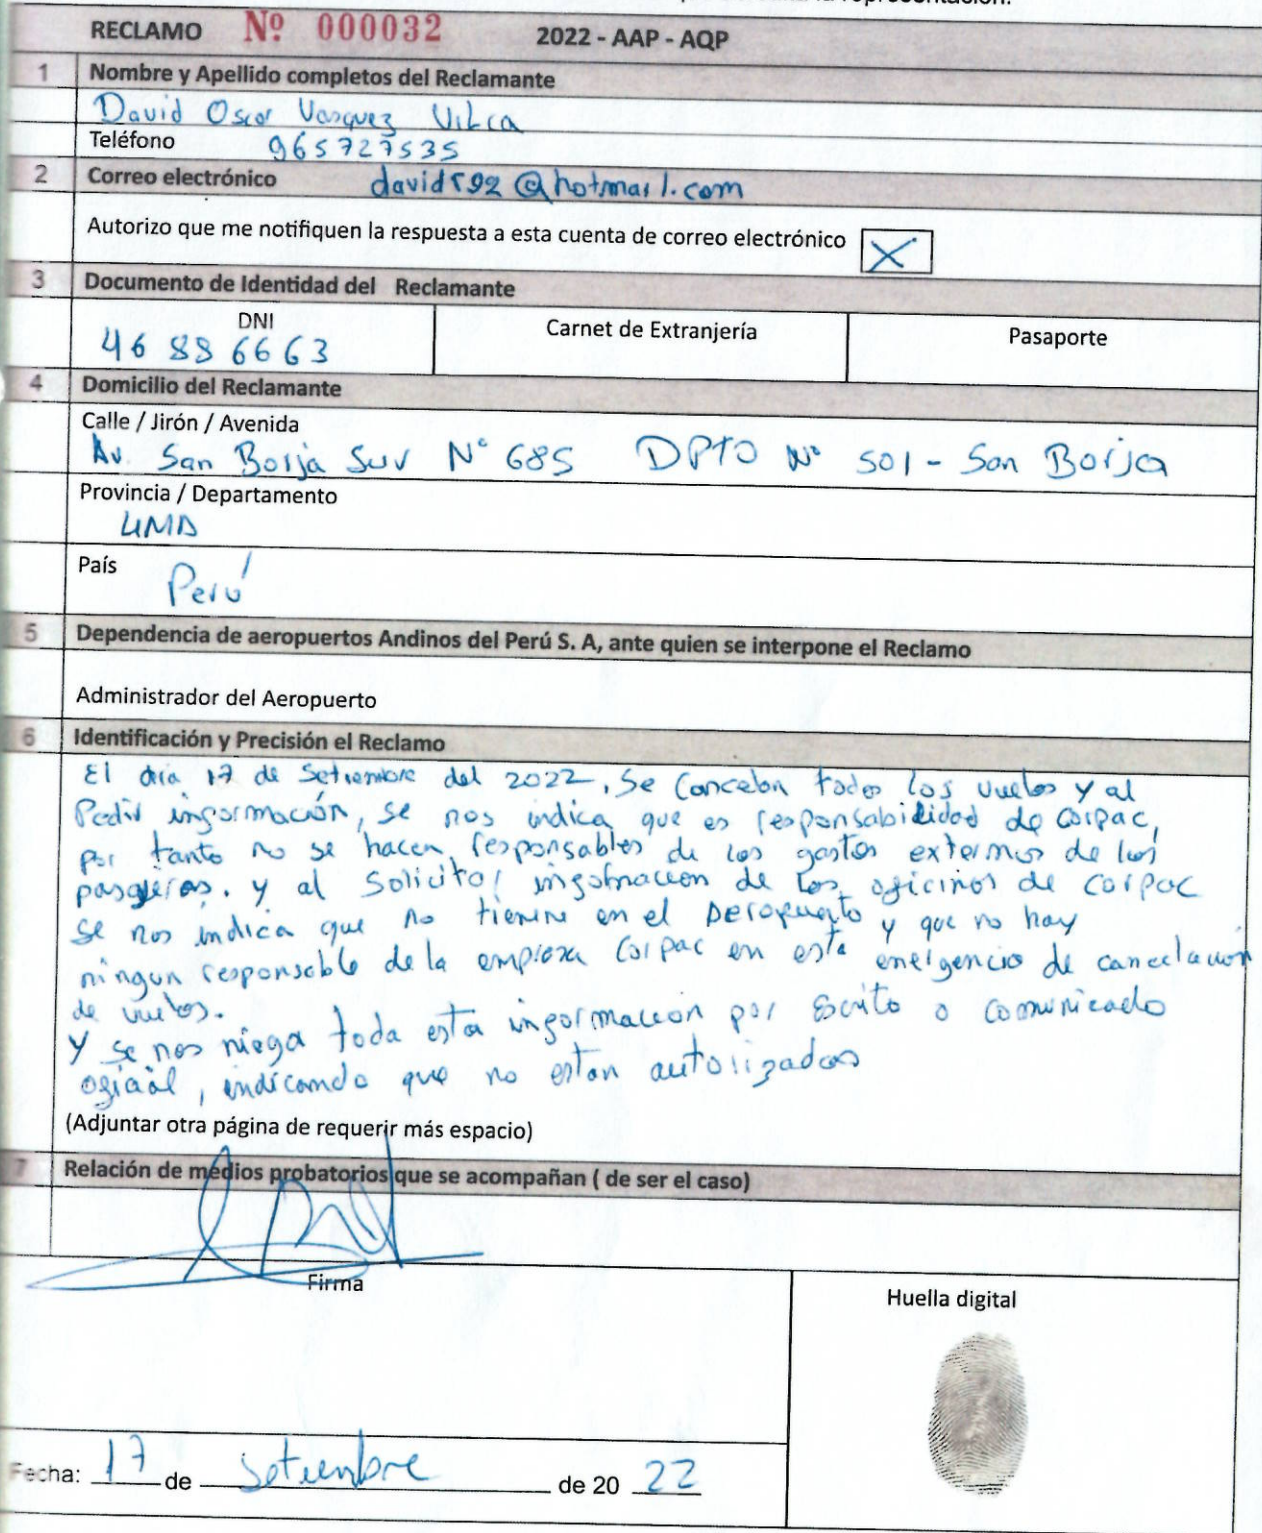 la representación.
RECLAMO Nº 000032 2022 - AAP - AQP
1 Nombre y Apellido completos del Reclamante
David Oscar Vasquez Vilca
Teléfono 965727535
2 Correo electrónico davids92@hotmail.com
Autorizo que me notifiquen la respuesta a esta cuenta de correo electrónico X
3 Documento de Identidad del Reclamante
DNI Carnet de Extranjería Pasaporte
46886663
4 Domicilio del Reclamante
Calle / Jirón / Avenida
Av. San Borja Sur N° 685 DPTO N° 501 - San Borja
Provincia / Departamento
LIMA
País
Perú
5 Dependencia de aeropuertos Andinos del Perú S. A, ante quien se interpone el Reclamo
Administrador del Aeropuerto
6 Identificación y Precisión el Reclamo
El día 17 de Setiembre del 2022, se cancelan todos los vuelos y al
Pedir información, se nos indica que es responsabilidad de corpac,
por tanto no se hacen responsables de los gastos externos de los
pasajeros. y al solicitar información de las oficinas de corpac
se nos indica que no tienen en el Aeropuerto y que no hay
ningun responsable de la empresa Corpac en esta emergencia de cancelación
de vuelos.
Y se nos niega toda esta información por Escrito o comunicado
oficial, indicando que no estan autorizados
(Adjuntar otra página de requerir más espacio)
7 Relación de medios probatorios que se acompañan ( de ser el caso)
Firma
Huella digital
Fecha: 17 de setiembre de 20 22